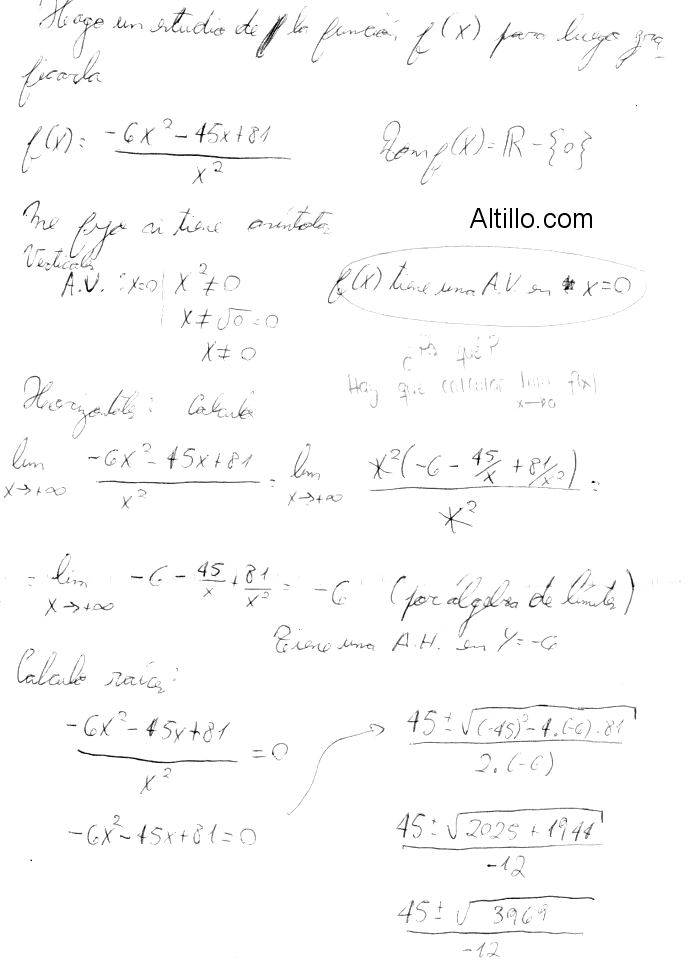 Hago un estudio de la función f(x) para luego gra-
ficarla
f(x) = (-6x² - 45x + 81) / x²    Dom f(x) = ℝ - {0}
Me fijo si tiene asíntotas
Altillo.com
Verticales
A.V.: x=0 | x² ≠ 0    f(x) tiene una A.V en x=0
x ≠ √0 = 0
x ≠ 0
¿Por qué?
Hay que calcular lim x→0 f(x)
Horizontales: Calculo
lim x→+∞ (-6x² - 45x + 81) / x² = lim x→+∞ x²(-6 - 45/x + 81/x²) / x² =
= lim x→+∞ -6 - 45/x + 81/x² = -6 (por álgebra de límites)
Tiene una A.H. en Y=-6
Calculo raíces:
(-6x² - 45x + 81) / x² = 0
-6x² - 45x + 81 = 0
→ (45 ± √((-45)² - 4.(-6).81)) / (2.(-6))
(45 ± √(2025 + 1944)) / -12
(45 ± √3969) / -12